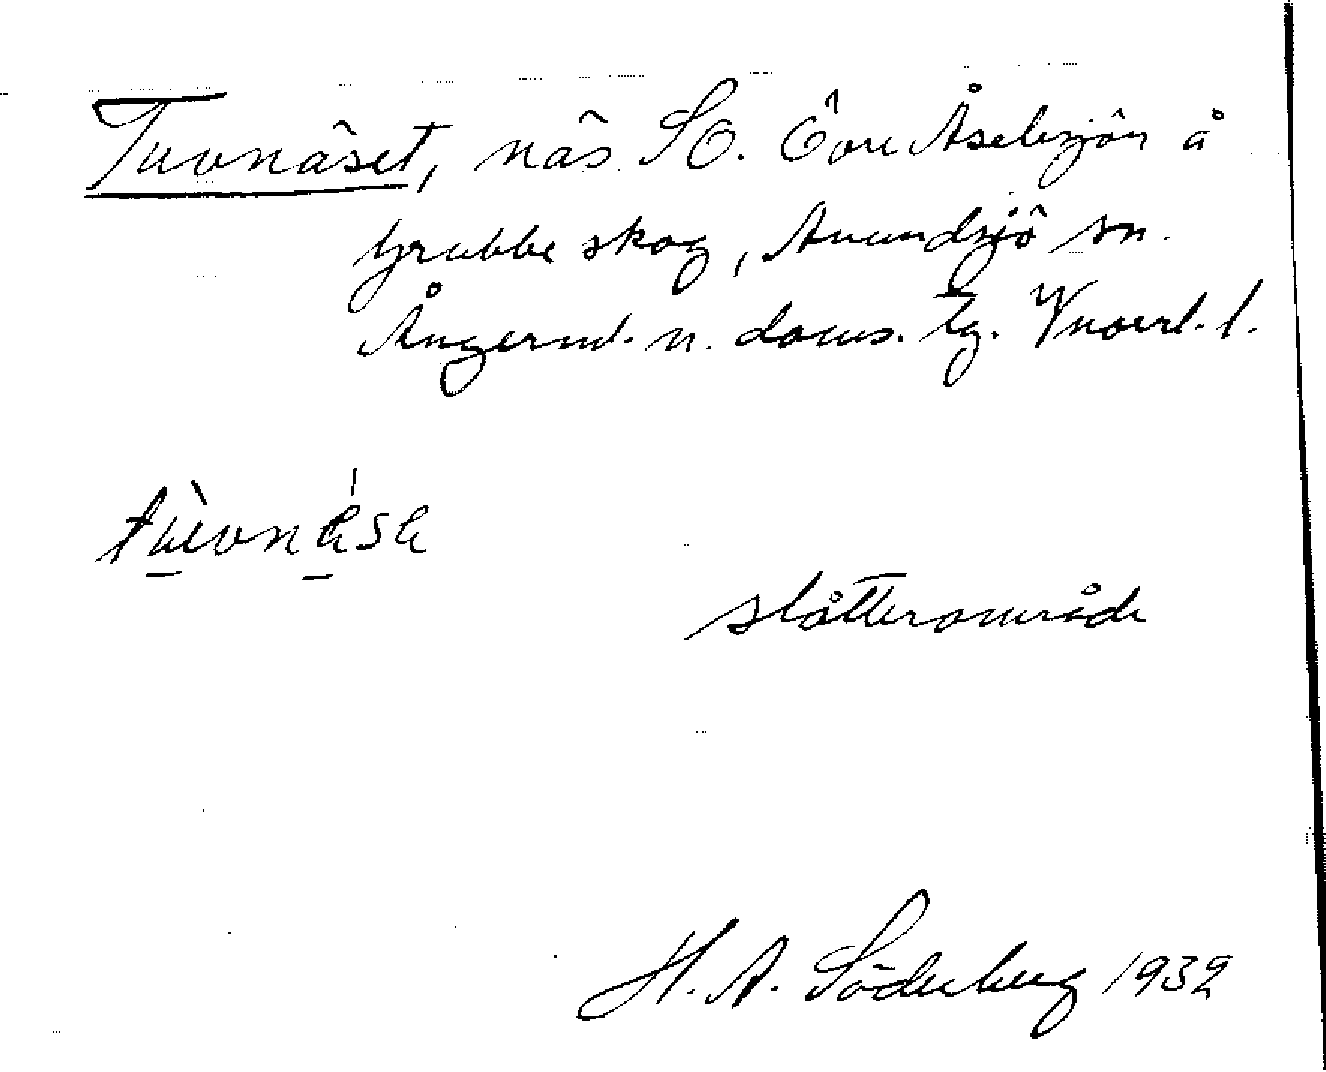 Tuvnäset, näs SO. Övre Åselesjön å
Grubbe skog, Anundsjö sn.
Ångerml. n. doms. tg. Vnorrl. l.
slåtterområde
H. A. Söderberg 1932